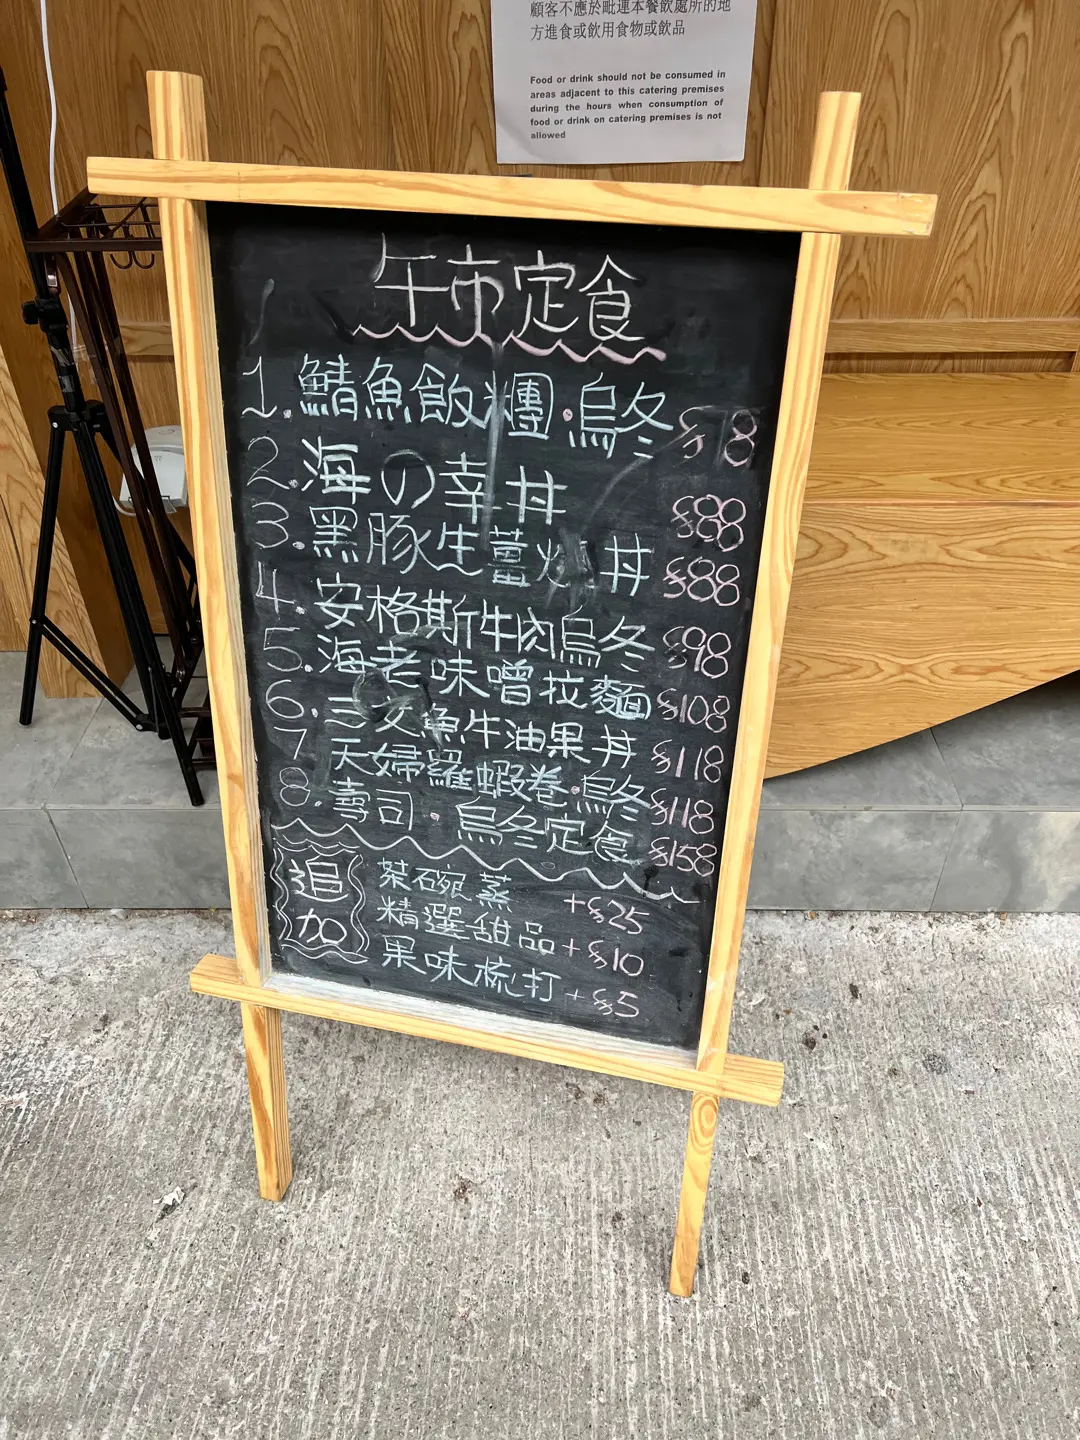 顧客不應於毗連本餐飲處所的地
方進食或飲用食物或飲品
Food or drink should not be consumed in
areas adjacent to this catering premises
during the hours when consumption of
food or drink on catering premises is not
allowed
午市定食
1. 鯖魚飯糰·烏冬 $78
2. 海の幸丼 $88
3. 黑豚生薑燒丼 $88
4. 安格斯牛肉烏冬 $98
5. 海老味噌拉麵 $108
6. 三文魚牛油果丼 $118
7 天婦羅蝦卷·烏冬 $118
8. 壽司·烏冬定食 $158
追加
茶碗蒸 +$25
精選甜品 +$10
果味梳打 +$5